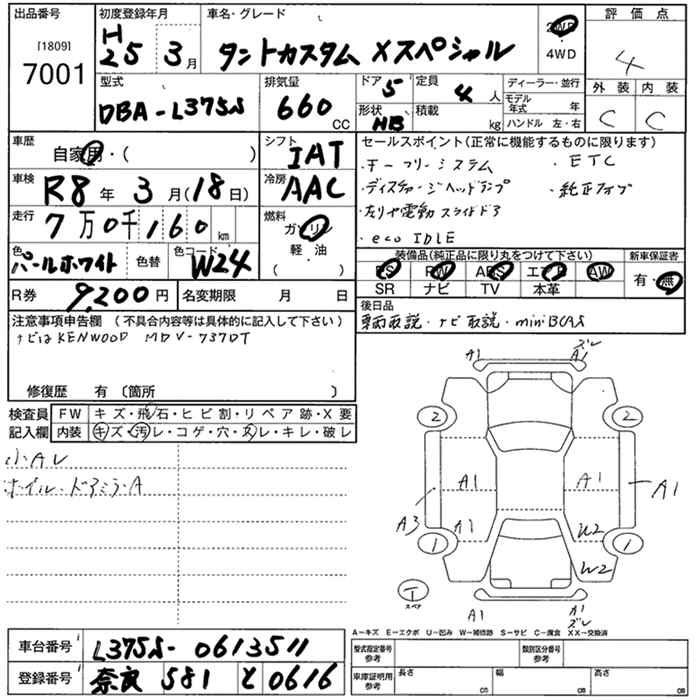 出品番号
[1809]
7001
初度登録年月
H25 3月
車名・グレード
タントカスタム Xスペシャル
2WD
4WD
評価点
4
外装 内装
C C
型式
DBA-L375S
排気量
660 CC
ドア 5
定員 4 人
形状 HB
積載 kg
ディーラー・並行
モデル年式 年
ハンドル 左・右
車歴
自家用・( )
シフト
IAT
車検
R8年 3月(18日)
冷房
AAC
走行
7万0千160km
燃料
ガソリン
軽・油
( )
色
パールホワイト
色替
色コード
W24
R券 9,200円
名変期限 月 日
セールスポイント(正常に機能するものに限ります)
・キーフリーシステム ・ETC
・ディスチャージヘッドランプ ・純正ナビ
・左リヤ電動スライドドア
・eco IDLE
装備品(純正品に限り丸をつけて下さい)
PS PW ABS エアB AW
SR ナビ TV 本革
新車保証書
有・無
後日品
車両取説・ナビ取説・miniBCAS
注意事項申告欄 (不具合内容等は具体的に記入して下さい)
ナビはKENWOOD MDV-737DT
修復歴 有 〔箇所 〕
検査員記入欄
FW キズ・飛石・ヒビ割・リペア跡・X要
内装 キズ・汚レ・コゲ・穴・スレ・キレ・破レ
小Aレ
ホイル・ドアミラーA
A1 ズレ
A1
2 2
A1 A1
A1
A3 A1
W2
1 1
W2
T
スペア
A1
A1
ズレ
A-キズ E-エクボ U-凹み W-補修跡 S-サビ C-腐食 XX-交換済
車台番号 L375S-0613511
登録番号 奈良 581 と 0616
型式指定番号 参考
類別区分番号 参考
車庫証明用 参考
長さ cm 幅 cm 高さ cm